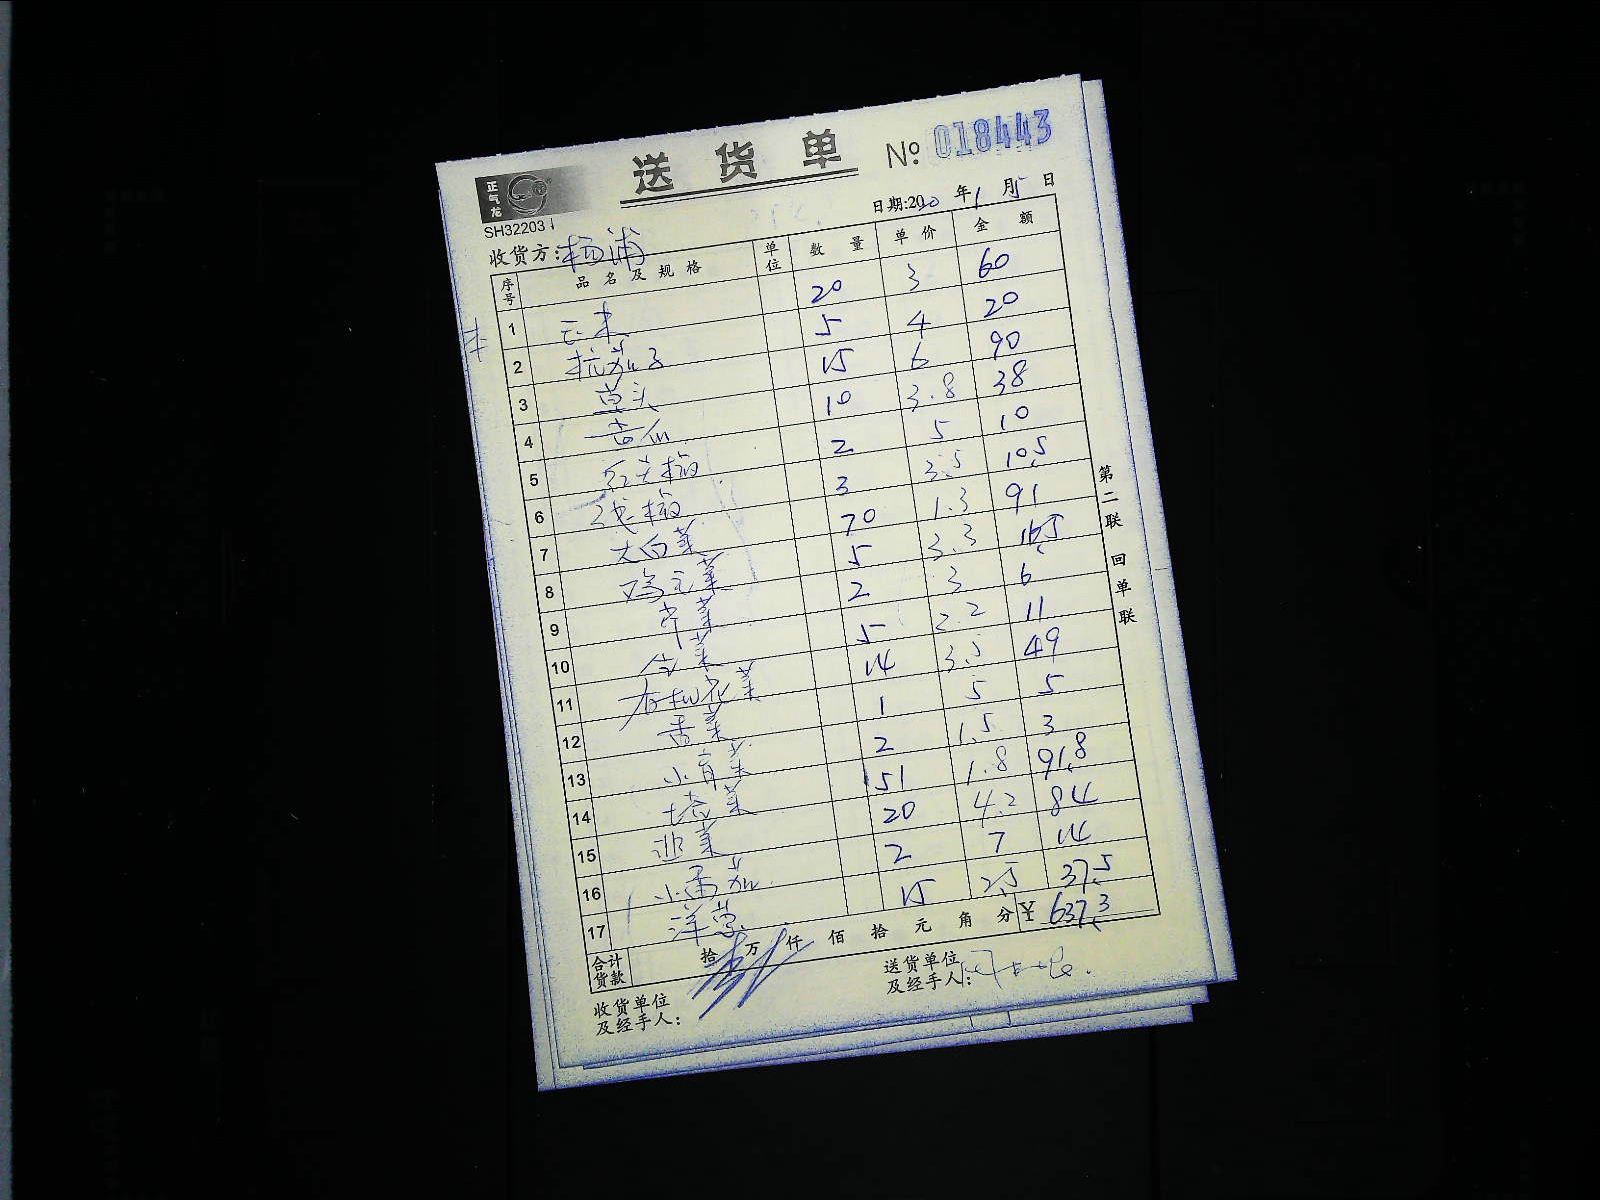 送货单 No 018443
正气龙
SH32203
日期:2020年1月5日
收货方:杨浦
序号 品名及规格 单位 数量 单价 金额
1 玉米 20 3 60
2 杭茄子 5 4 20
3 草头 15 6 90
4 苦瓜 10 3.8 38
5 红尖椒 2 5 10
6 线椒 3 3.5 10.5
7 大白菜 70 1.3 91
8 鸡毛菜 5 3.3 16.5
9 芹菜 2 3 6
10 菜 5 2.2 11
11 有机花菜 14 3.5 49
12 香菜 1 5 5
13 小青菜 2 1.5 3
14 塔菜 51 1.8 91.8
15 菜 20 4.2 84
16 小番茄 2 7 14
17 洋葱 15 2.5 37.5
合计货款 拾 万 仟 佰 拾 元 角 分 ¥ 637.3
收货单位及经手人:
送货单位及经手人:
第二联 回单联